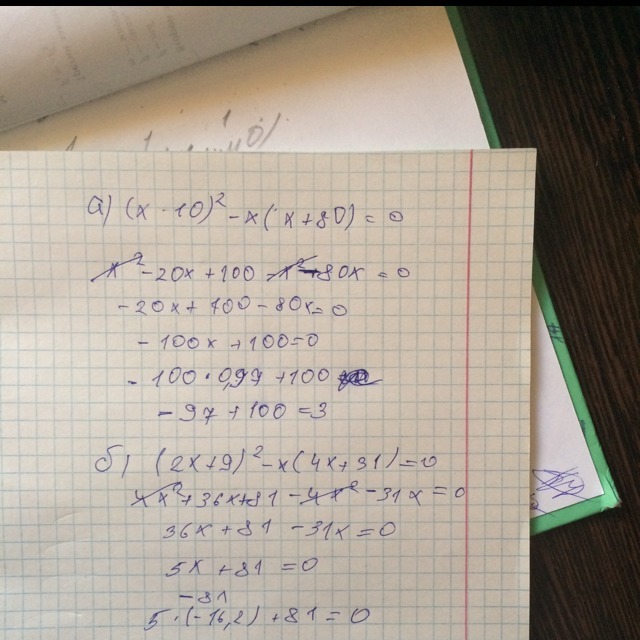 а) (x - 10)² - x(x+80) = 0
x² - 20x + 100 - x² - 80x = 0
- 20x + 100 - 80x = 0
- 100x + 100 = 0
- 100 · 0,97 + 100
- 97 + 100 = 3
б) (2x+9)² - x(4x+31) = 0
4x² + 36x + 81 - 4x² - 31x = 0
36x + 81 - 31x = 0
5x + 81 = 0
- 81
5 · (-16,2) + 81 = 0